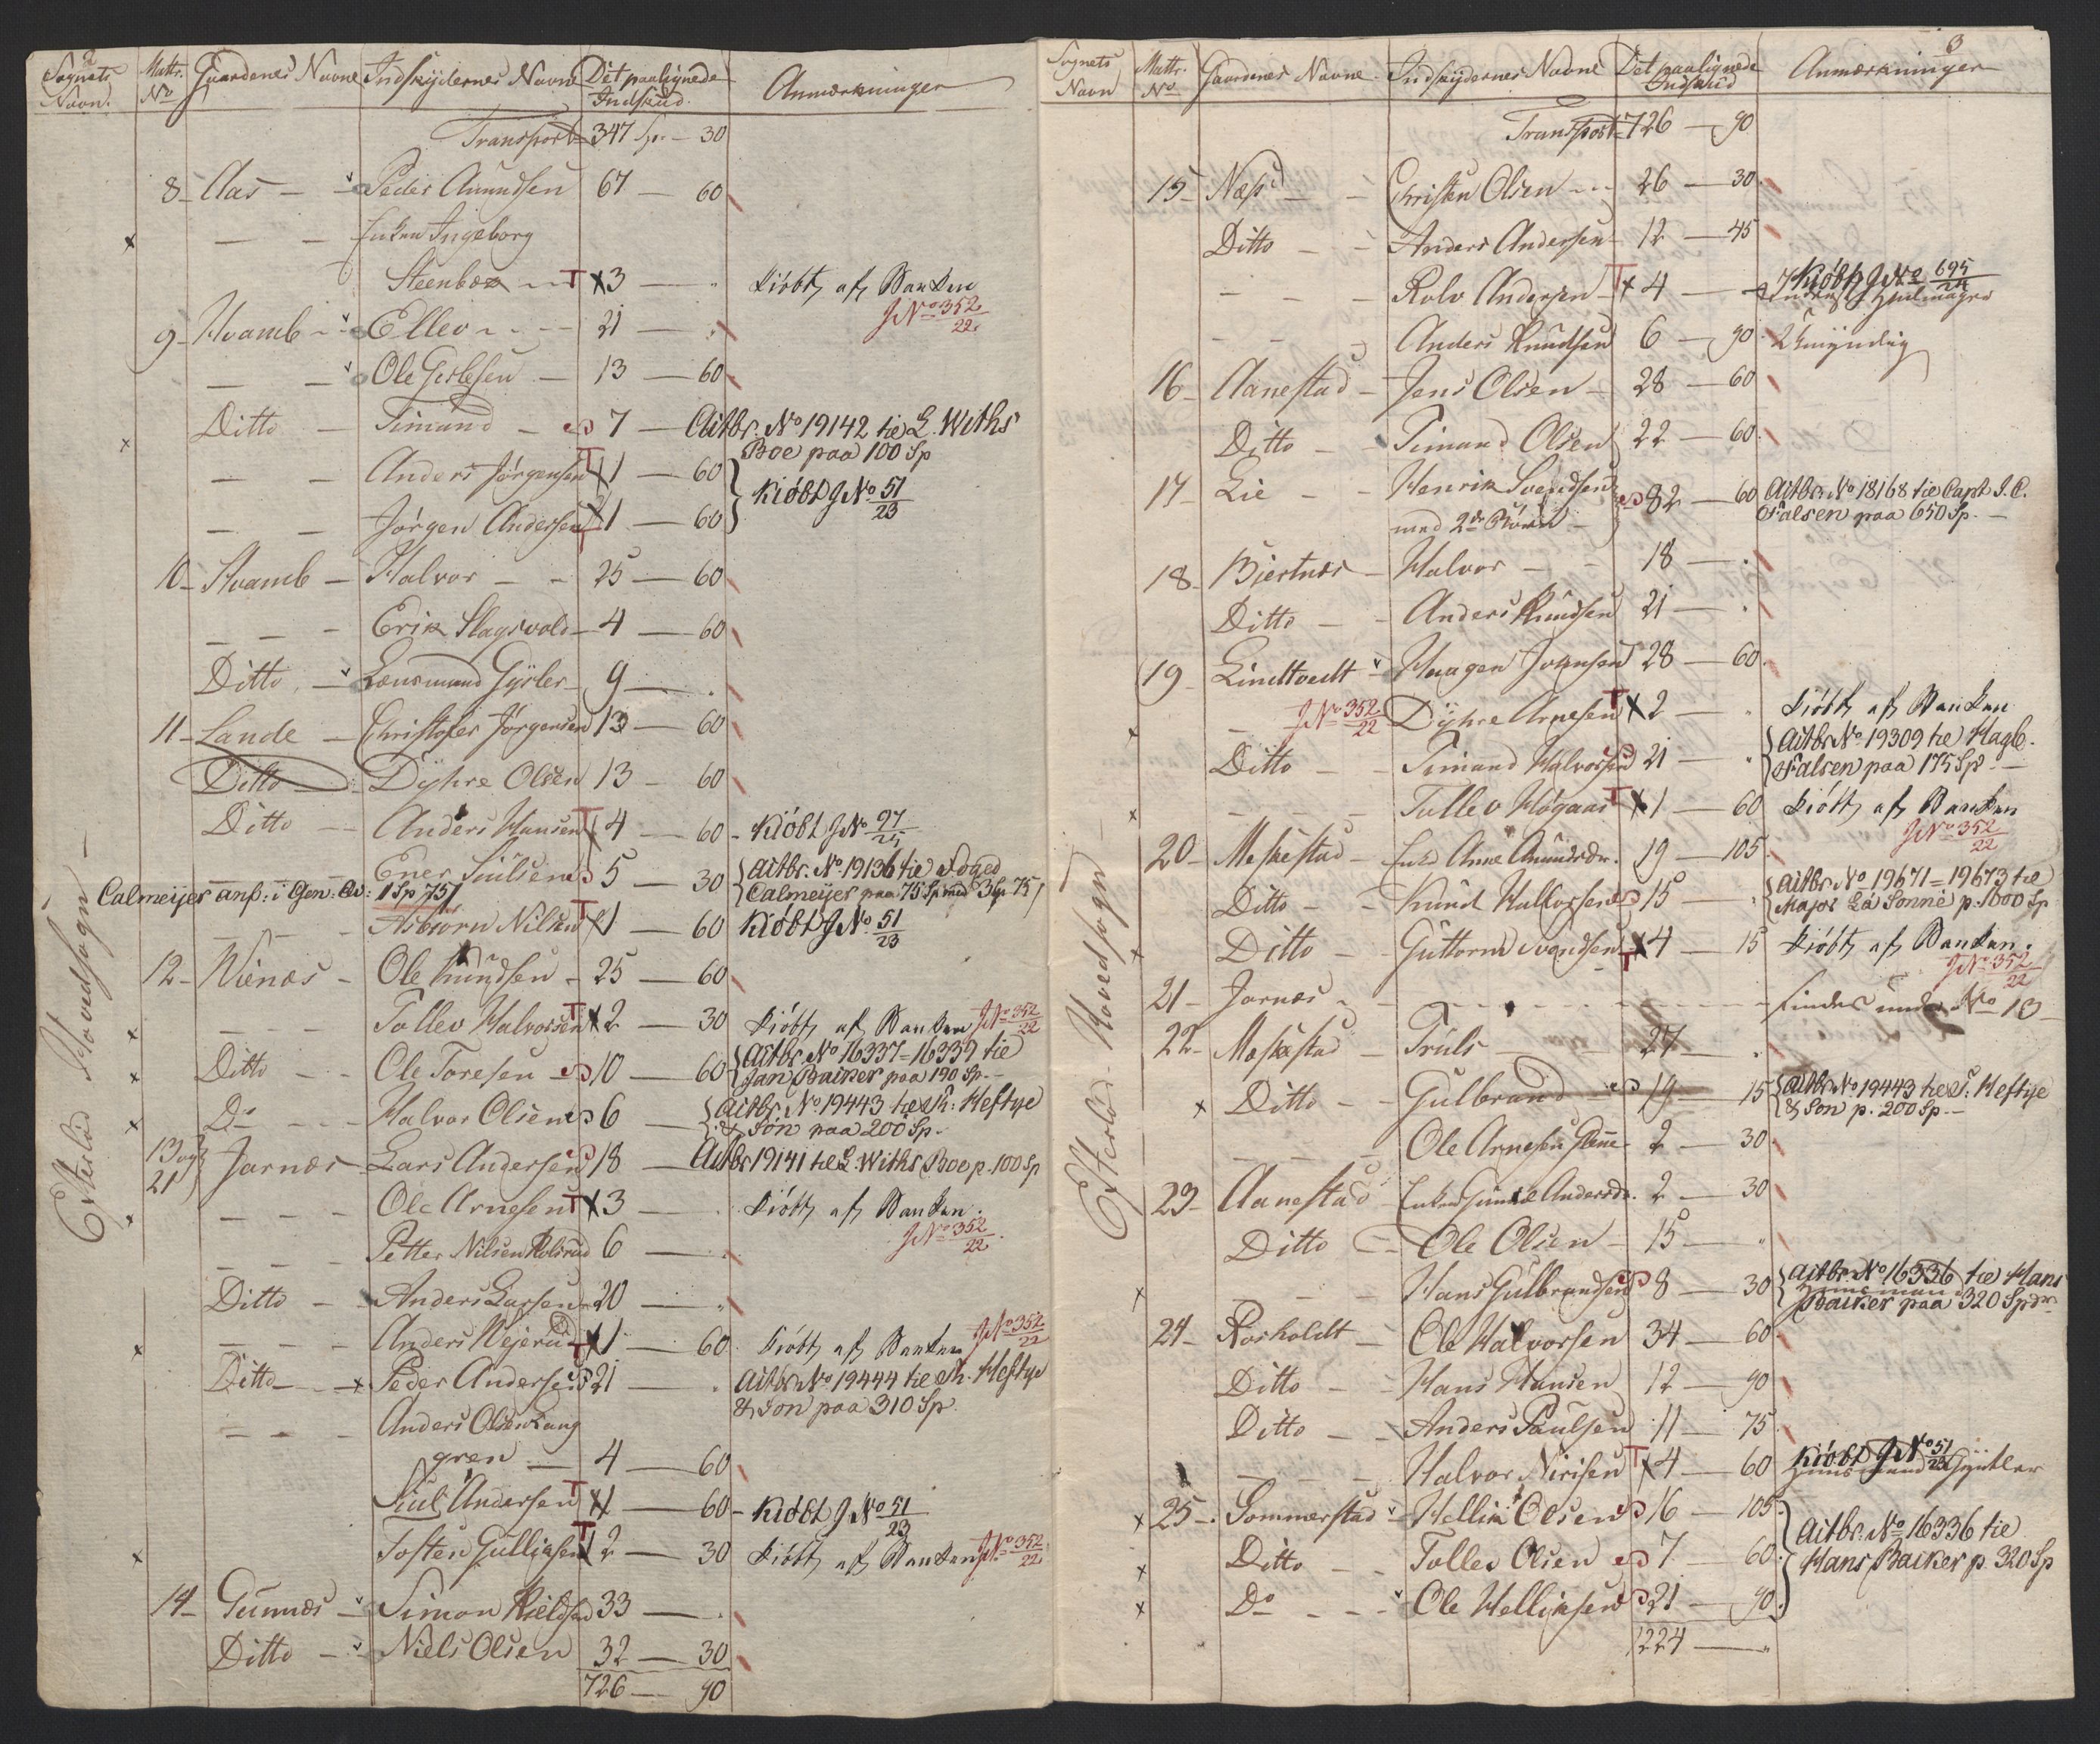 2
Sognets Navn. Mattr. No Gaardenes Navne Indskydernes Navne Det paalignede Indskud. Anmærkninger
Transport 347 Sp. - 30
8 - Aas - - Peder Amundsen 67 - 60
x - - Enken Ingeborg
Steenbæk - T x 3 - " kiöbt af Banken
JNo 352/22
9 - Hvamb - - Ellev - - - 21 - "
- - Ole Gislesen - 13 - 60
x Ditto - Simund - 7 - Actbr. No 19142 til L. Withs
Boe paa 100 Sp
- - Anders Jörgensen T x 1 - 60 } Kiöbt JNo 51/23
- - Jörgen Andersen T x 1 - 60 }
10 - Hvamb - Halvor - - 25 - 60
- - - Erik Slagsvold - 4 - 60
Ditto - Lensmand Gysler - 9 - "
11 - Lande - Christofer Jörgensen 13 - 60
Ditto - Dyhre Olsen 13 - 60
Ditto - - Anders Hansen T x 4 - 60 - Kiöbt JNo 97/25
- - - Ener Siulsen 5 - 30 { Actbr. No 19136 til Foged
Calmeijer anf: i Gen: Qv: 1 Sp 75 / Calmeijer paa 75 Sp med 3 Sp 75 /
- - - Asbiorn Nilsen T x 1 - 60 Kiöbt JNo 51/23
12 - Wienæs - Ole Knudsen - 25 - 60
x - - - Tollev Halvorsen T x 2 - 30 kiöbt af Banken JNo 352/22
x Ditto - - Ole Toresen - 10 - 60 { Actbr. No 16337 = 16339 til
Jan Backer paa 190 Sp. -
x Do - - - Halvor Olsen 6 - { Actbr. No 19443 til Th: Heftye
& Son paa 200 Sp.
13 og 21 } Jarnæs - Lars Andersen 18 - Actbr 19141 til L. Withs Boe p. 100 Sp
x - - - Ole Arnesen T x 3 - " kiöbt af Banken.
JNo 352/22
- - - Petter Nilsen Rolsrud 6 - "
Ditto - - Anders Larsen - 20 - "
x - - - Anders Hejerud T x 1 - 60 kiöbt af Banken JNo 352/22
Ditto - - x Peder Andersen 21 - " Actbr. No 19444 til Th. Heftye
& Son paa 310 Sp.
- - - Anders Olsen Lang
gren - 4 - 60
Siul Andersen T x 1 - 60 - Kiöbt JNo 51/23
x Tosten Gulliksen T 2 - 30 kiöbt af Banken JNo 352/22
14 - Gunnæs - Simon Kieldsen 33 - "
Ditto - - Niels Olsen 32 - 30
726 - 90
Hovedsogn -
3
Sognets Navn Mattr. No Gaardenes Navne Indskydernes Navne Det paalignede Indskud Anmærkninger
Transport 726 - 90
15 - Næs - - Christen Olsen - - 26 - 30
Ditto - - Anders Andersen - 12 - 45
- - - Rolv Andersen T x 4 - Kiöbt JNo 695/24
- - - Anders Knudsen 6 - 90
16 - Aanestad - Jens Olsen - 28 - 60
Ditto - - Simund Olsen 22 - 60
17 - Lie - - Henrik Svendsen
med 2de 82 - 60 Actbr. No 18168 til Capt I. C.
Falsen paa 650 Sp. -
18 - Biertnæs - Halvor - - 18 - "
Ditto - - Anders Knudsen 21 - "
19 - Lindtvedt - Haagen Johnsen 28 - 60
x JNo 352/22 Dyhre Arnesen T x 2 - " kiöbt af Banken
Ditto - - Simund Halvorsen 21 - " { Actbr No 19309 til Hagb.
Falsen paa 175 Sp. -
x - - - Tollev Högaas T x 1 - 60 kiöbt af Banken
JNo 352/22
20 - Meskestad - Enke Anne Amundsdr. 19 - 105
Ditto - - Knud Halvorsen 15 - " { Actbr No 19671 = 19673 til
Major La Sonne p. 1000 Sp
x Ditto - - Guttorm Svendsen T x 4 - 15 kiöbt af Banken.
JNo 352/22
21 - Jarnæs - - - - - findes under No 13
22 - Meskestad - Truls - 27 - "
x Ditto - - Gulbrand - 19 - 15 { Actbr. No 19443 til T. Heftye
& Son p. 200 Sp. -
- - - Ole Arnesen 2 - 30
23 - Aanestad Enken Andersdr. 2 - 30
Ditto - - Ole Olsen - 15 - "
x - - - Hans Gulbrandsen 8 - 30 { Actbr. No 16336 til Hans
Backer paa 320 Spdr
24 - Rosholdt - Ole Halvorsen 34 - 60
Ditto - - Hans Hansen 12 - 90
Ditto - - Anders Paulsen 11 - 75
- - - Halvor Nirisen T x 4 - 60 Kiöbt JNo 51/23
x 25 - Sommerstad - Hellik Olsen 16 - 105 }
x Ditto - - Tollev Olsen 7 - 60 } Actbr. No 16336 til
Hans Backer p. 320 Sp
x Do - - - Ole Helliksen 21 - 90 }
1224 - "
Hovedsogn -